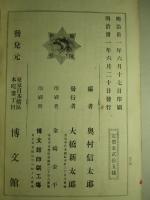 明治卅一年六月十七日印刷
明治卅一年六月二十日發行
編者 奥村信太郎
發行者 大橋新太郎
印刷者
印刷所 博文館印刷工場
發兌元
東京市日本橋區
本町三丁目
博文館